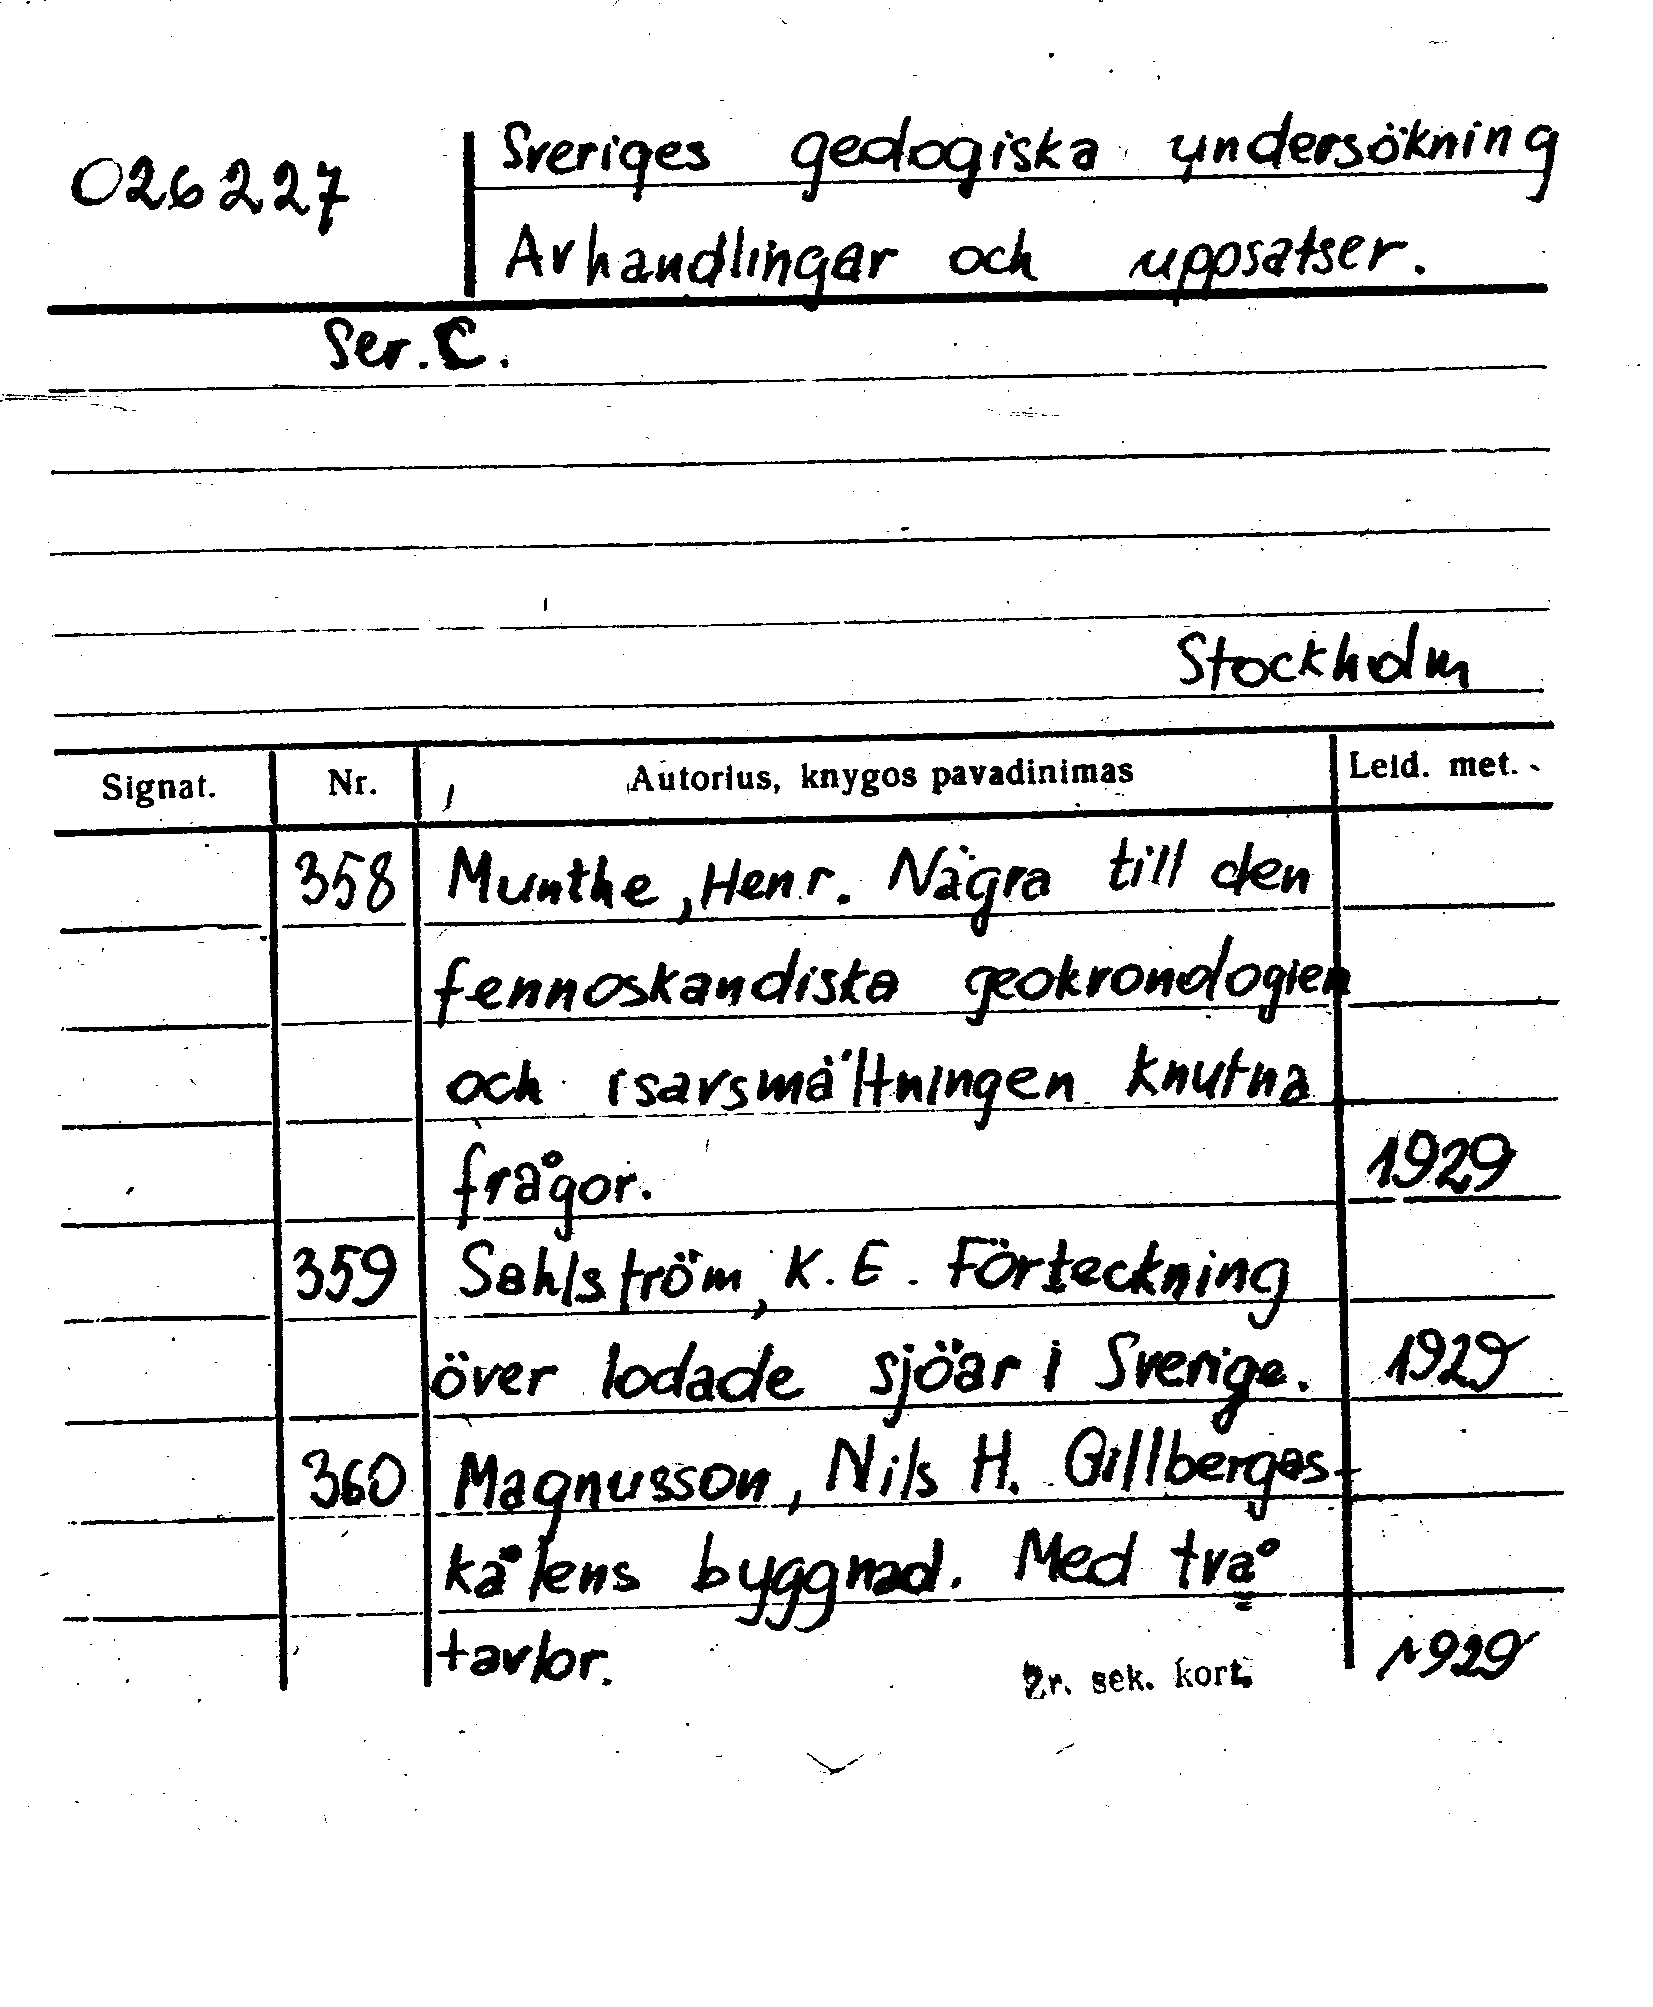 026227
Sveriges geologiska undersökning
Avhandlingar och uppsatser.
Ser. C.
Stockholm
Signat. Nr. Autorius, knygos pavadinimas Leid. met.
358 Munthe, Henr. Några till den
fennoskandiska geokronologien
och isavsmältningen knutna
frågor. 1929
359 Sahlström, K. E. Förteckning
över lodade sjöar i Sverige. 1929
360 Magnusson, Nils H. Gillbergas-
kålens byggnad. Med två
tavlor. 1929
Žr. sek. kort.